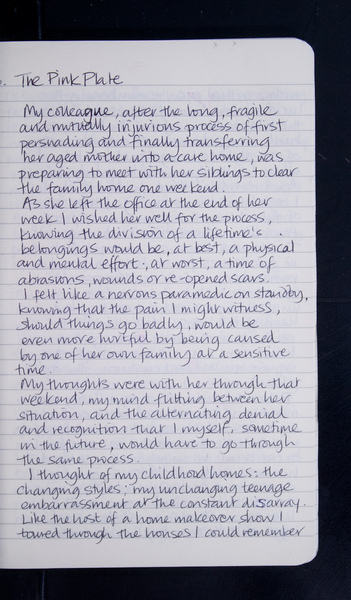 The Pink Plate
My colleague, after the long, fragile
and mutually injurious process of first
persuading and finally transferring
her aged mother into a care home, was
preparing to meet with her siblings to clear
the family home one weekend.
As she left the office at the end of her
week I wished her well for the process,
knowing the division of a lifetime's
belongings would be, at best, a physical
and mental effort; at worst, a time of
abrasions, wounds or re-opened scars.
I felt like a nervous paramedic on standby,
knowing that the pain I might witness,
should things go badly, would be
even more hurtful by being caused
by one of her own family at a sensitive
time.
My thoughts were with her through that
weekend, my mind flitting between her
situation, and the alternating denial
and recognition that I myself, sometime
in the future, would have to go through
the same process.
I thought of my childhood homes: the
changing styles; my unchanging teenage
embarrassment at the constant disarray.
Like the host of a home makeover show I
toured through the houses I could remember